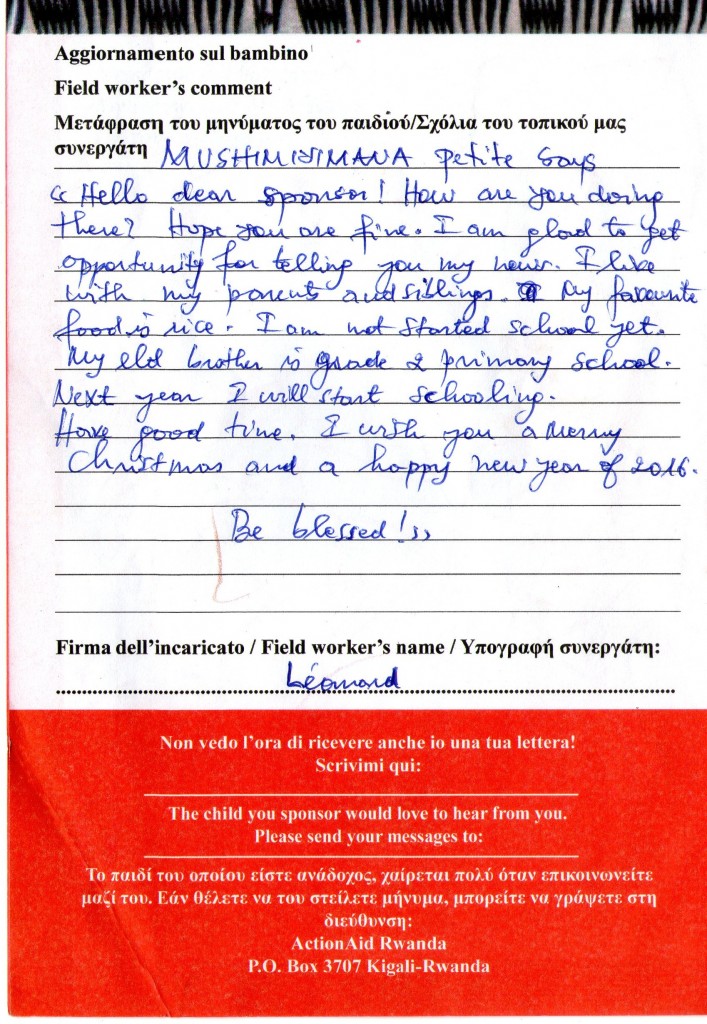 Aggiornamento sul bambino
Field worker's comment
Μετάφραση του μηνύματος του παιδιού/Σχόλια του τοπικού μας
συνεργάτη MUSHIMIYIMANA petite says
« Hello dear sponsor! How are you doing
there? Hope you are fine. I am glad to get
opportunity for telling you my news. I like
with my parents and siblings. My favourite
food is rice. I am not started school yet.
My eld brother is grade 2 primary school.
Next year I will start schooling.
Have good time. I wish you a merry
Christmas and a happy new year of 2016.
Be blessed! »
Firma dell'incaricato / Field worker's name / Υπογραφή συνεργάτη:
Léonard
Non vedo l'ora di ricevere anche io una tua lettera!
Scrivimi qui:
The child you sponsor would love to hear from you.
Please send your messages to:
Το παιδί του οποίου είστε ανάδοχος, χαίρεται πολύ όταν επικοινωνείτε
μαζί του. Εάν θέλετε να του στείλετε μήνυμα, μπορείτε να γράψετε στη
διεύθυνση:
ActionAid Rwanda
P.O. Box 3707 Kigali-Rwanda